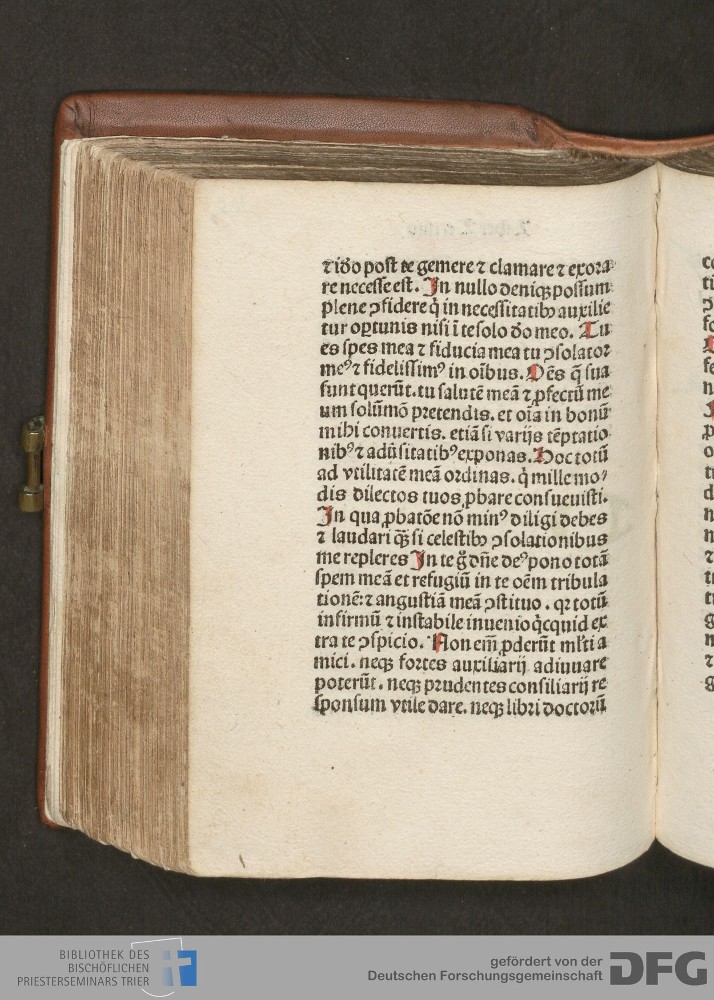 ⁊ iďo post te gemere ⁊ clamare ⁊ exora-
re necesse est. In nullo deniqꝫ possum
plene ꝯfidere q̇ in necessitatibꝰ auxilie
tur oꝑtunis nisi ī te solo ďo meo. Tu
es spes mea ⁊ fiducia mea tu ꝯsolator
meꝰ ⁊ fidelissimꝰ in oībus. Oēs q̄ sua
sunt querūt. tu salutē meā ⁊ ꝓfectū me
um solūmō pretendis. et oīa in bonū
mihi conuertis. etiā si varijs tēptatio
nibꝰ ⁊ adūsitatibꝰ exponas. Hoc totū
ad vtilitatē meā ordinas. q̇ mille mo/
dis dilectos tuos ꝓbare consueuisti.
In qua ꝓbatōe nō minꝰ diligi debes
⁊ laudari qꝫ̄ si celestibꝰ ꝯsolationibus
me repleres In te g̊ dn̄e deꝰ pono totā
spem meā et refugiū in te oēm tribula
tionē: ⁊ angustiā meā ꝯstituo. qꝛ totū
infirmū ⁊ instabile inuenio q̇cquid ex
tra te ꝯspicio. Non em̄ ꝓderūt ml̄ti a
mici. neqꝫ fortes auxiliarij adiuuare
poterūt. neqꝫ prudentes consiliarij re
sponsum vtile dare. neqꝫ libri doctorū
BIBLIOTHEK DES
BISCHÖFLICHEN
PRIESTERSEMINARS TRIER
gefördert von der
Deutschen Forschungsgemeinschaft
DFG